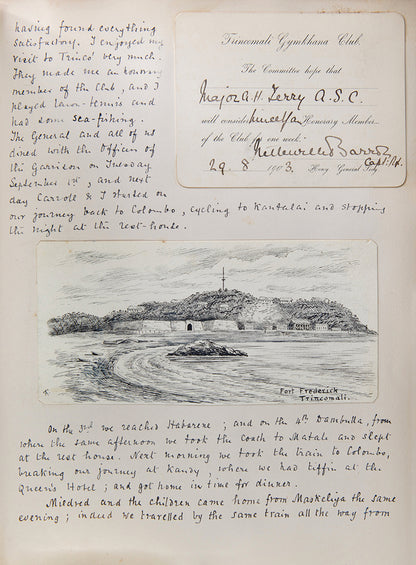 having found everything
satisfactory. I enjoyed my
visit to Trinco' very much.
They made me an honorary
member of the Club, and I
played lawn-tennis and
had some sea-fishing.
The General and all of us
dined with the Officers of
the Garrison on Tuesday
September 1st, and next
day Carroll & I started on
our journey back to Colombo, cycling to Kantalai and stopping
the night at the rest-house.
Trincomali Gymkhana Club.
The Committee hope that
Major A.H. Terry A.S.C.
will consider himself an Honorary Member
of the Club for one week.
Barr
Capt. RA.
29. 8 1903. Hony. General Secy.
Fort Frederick
Trincomali.
On the 3rd we reached Habarene; and on the 4th Dambulla, from
where the same afternoon we took the coach to Matale and slept
at the rest house. Next morning we took the train to Colombo,
breaking our journey at Kandy, where we had tiffin at the
Queen's Hotel; and got home in time for dinner.
Mildred and the children came home from Maskeliya the same
evening; indeed we travelled by the same train all the way from